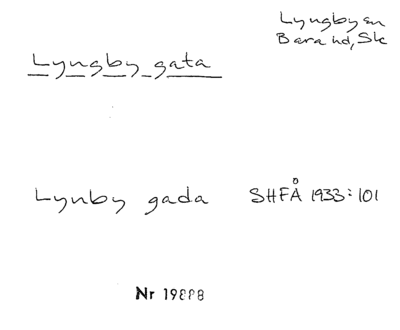 Lyngby sn
Bara hd, Sk
Lyngby gata
Lynby gada SHFÅ 1933:101
Nr 19888